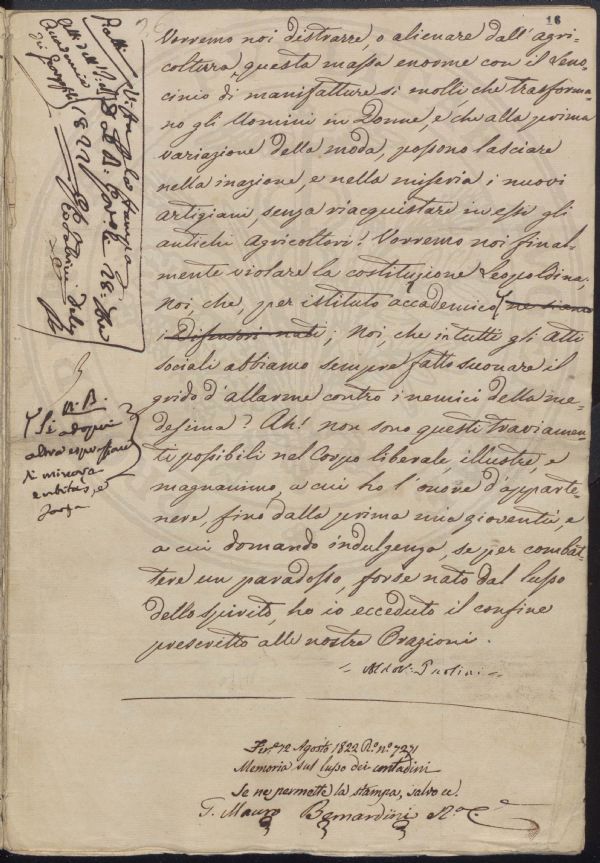 16
Vorremo noi distrarre, o alienare dall'agri-
coltura questa massa enorme con il Leno-
cinio di manifatture sì molli che trasforma-
no gli Uomini in Donne, e che alla prima
variazione della moda, possono lasciare
nella inazione, e nella miseria i nuovi
artigiani, senza riacquistare in essi gli
antichi Agricoltori! Vorremo noi final-
mente violare la costituzione Leopoldina;
Noi, che, per istituto accademico ne siamo
i Difensori nati; Noi, che in tutti gli Atti
sociali abbiamo sempre fatto suonare il
grido d'allarme contro i nemici della me-
desima? Ah! non sono questi traviamen-
ti possibili nel Corpo liberale, illustre, e
magnanimo, a cui ho l'onore d'apparte-
nere, fino dalla prima mia gioventù, e
a cui domando indulgenza, se per combat-
tere un paradosso, forse nato dal lusso
dello spirito, ho io ecceduto il confine
prescritto alle nostre Orazioni.
Aldov: Paolini
Visto per la stampa
1822
N.B.
Si adopri
altra espressione
di minore
e
forza
12 Agosto 1822 R.o n.o 7271
Memoria sul lusso dei contadini
Se ne permette la stampa, salvo ec!
T. Mauro Bernardini